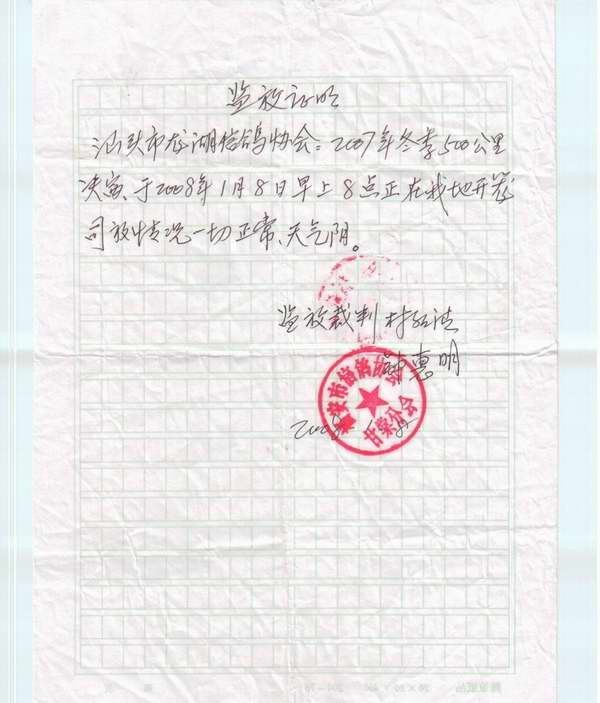 监放证明
汕头市龙湖信鸽协会：2007年冬季500公里
决赛、于2008年1月8日早上8点正在我地开笼
司放情况一切正常、天气阴。
监放裁判
惠明
安市信鸽协会
甘棠分会
2008